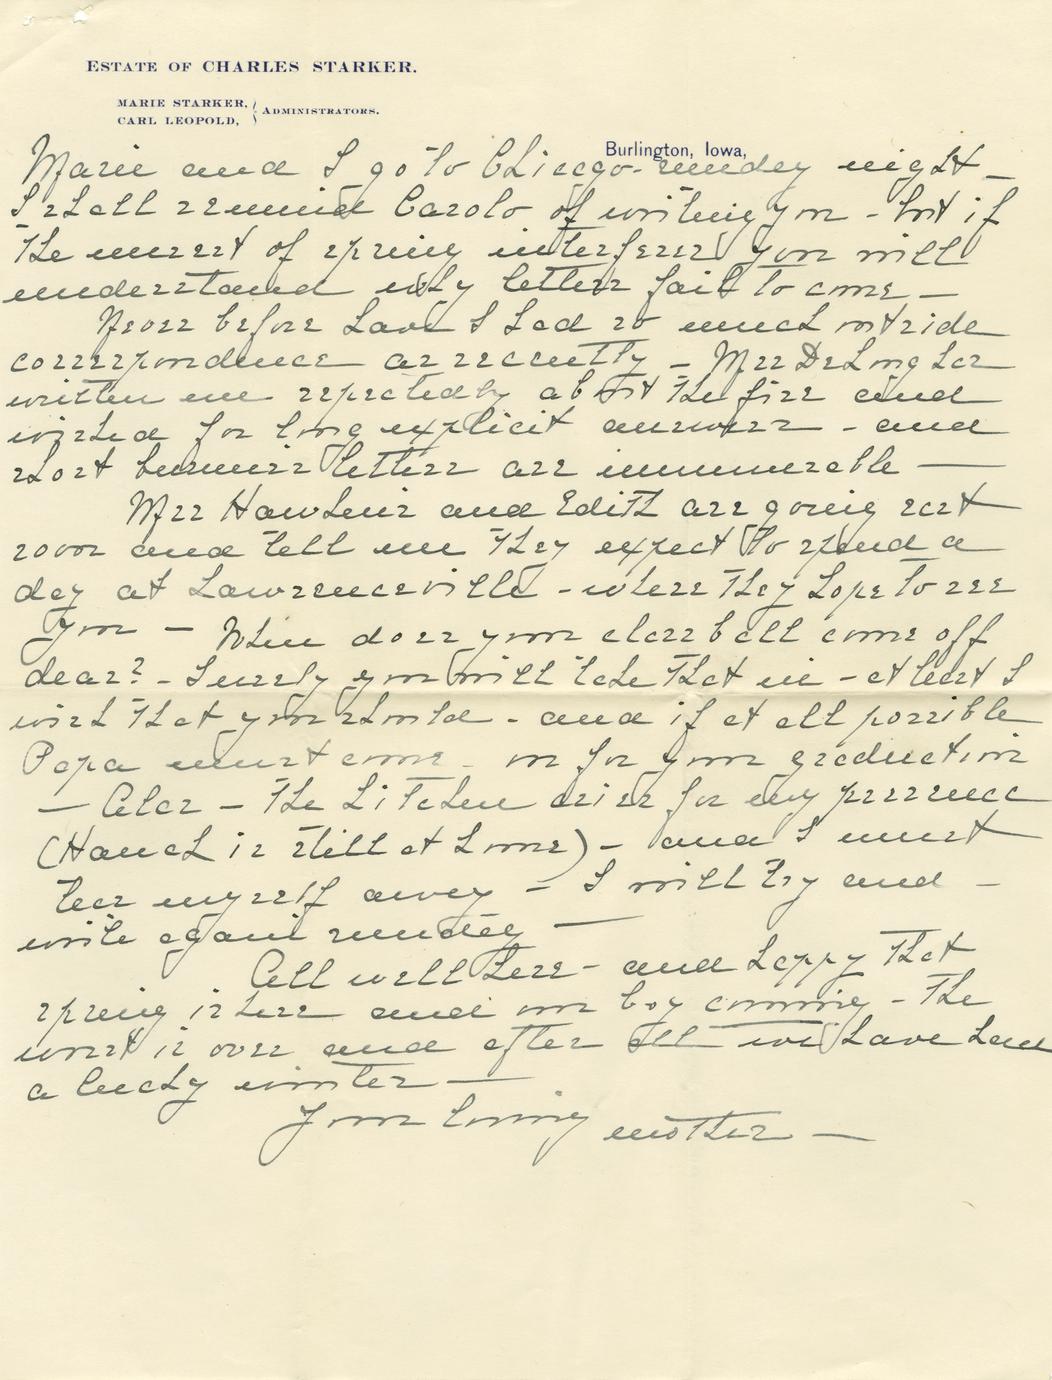 ESTATE OF CHARLES STARKER.
MARIE STARKER,
CARL LEOPOLD, } ADMINISTRATORS.
Burlington, Iowa,
Marie and I go to Chicago - sunday night -
I shall remind Carolo of writing you - but if
the unrest of spring interferes you will
understand why letters fail to come -
Never before have I had so much outside
correspondence as recently - Mrs DeLong has
written me repeatedly about the fire and
wished for long explicit answers - and
short business letters are innumerable -
Mrs Hawkins and Edith are going east
soon and tell me they expect to spend a
day at Lawrenceville - where they hope to see
you - When does your class ball come off
dear? - Surely you will take that in - at least I
wish that you should - and if at all possible
Papa must come on for your graduation
- Alas - the kitchen cries for my presence
(Hanch is still at home) - and I must
tear myself away - I will try and -
write again sunday -
All well here - and happy that
spring is here and our boy coming - the
worst is over and after all we have had
a lucky winter -
Your loving mother -